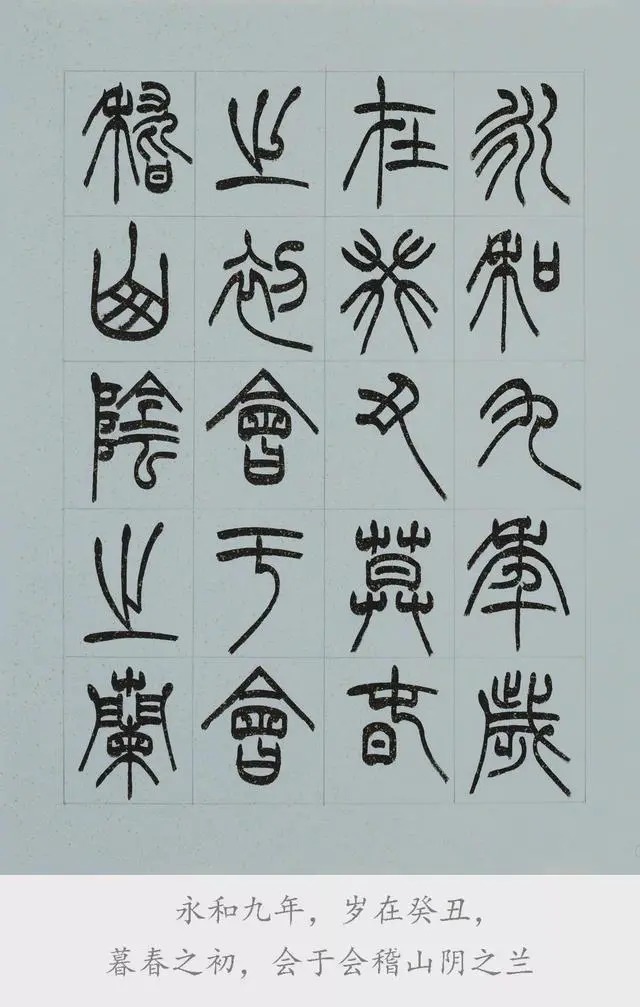 永和九年歲
在癸丑莫春
之初會于會
稽山陰之蘭
永和九年，岁在癸丑，
暮春之初，会于会稽山阴之兰